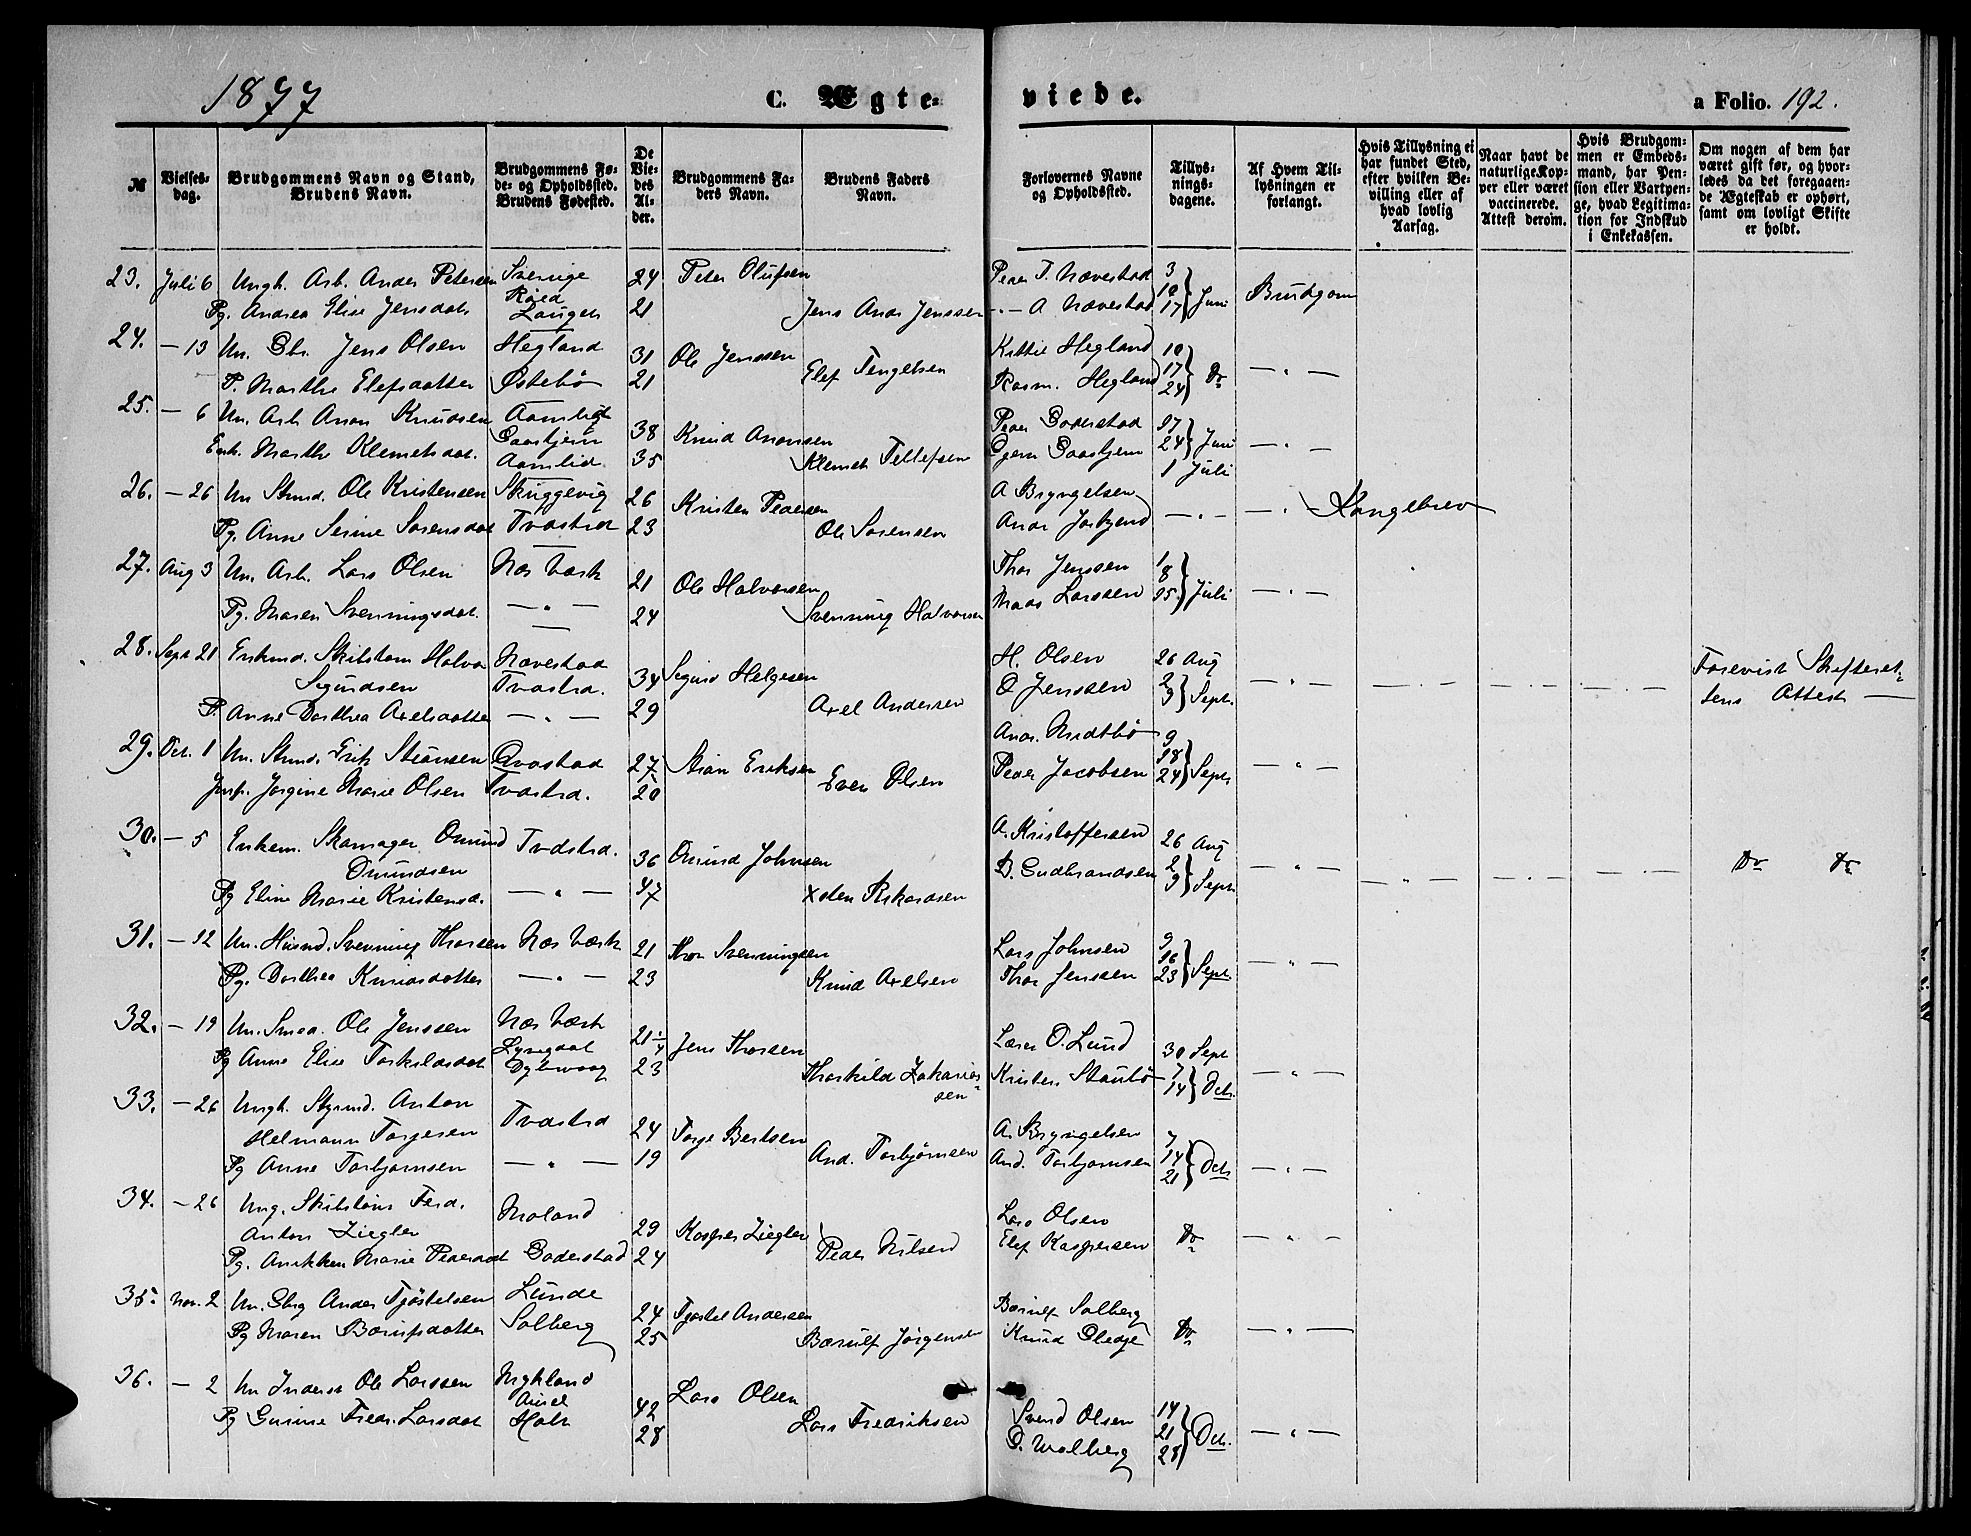 1877
C. Ægteviede.
a Folio. 192.
№
Vielses-dag.
Brudgommens Navn og Stand, Brudens Navn.
Brudgommens Føde- og Opholdssted. Brudens Fødested.
De Viedes Alder.
Brudgommens Faders Navn.
Brudens Faders Navn.
Forlovernes Navne og Opholdssted.
Tillysningsdagene.
Af Hvem Tillysningen er forlangt.
Hvis Tillysning ei har fundet Sted, efter hvilken Bevilling eller af hvad lovlig Aarsag.
Naar havt de naturlige Kopper eller været vaccinerede. Attest derom.
Hvis Brudgommen er Embedsmand, har Pension eller Vartpenge, hvad Legitimation for Indskud i Enkekassen.
Om nogen af dem har været gift før, og hvorledes da det foregaaende Ægteskab er ophørt, samt om lovligt Skifte er holdt.
23. Juli 6 Ungk. Arb. Ander Petersen Sverige 24 Peter Olufsen Peder T. Nævestad 3
Røed 10 Brudgom
Pg. Andrea Elise Jensdat. Lauget 21 Jens Andr Jenssen — A Nævestad 17 Juni
24. — 13 Un. Gbr. Jens Olsen Hegland 31 Ole Jenssen Kittil Hegland 10
P. Marthe Elefsdatter Østebö 21 Elef Tengelsen Rasm. Hegland 17 24 Do — " —
25. — 6 Un. Arb Anon Knudsen Aamlid 38 Knud Anonsen Peder Goderstad 17
Gaasbjern 24 Juni — " —
Enk. Marthe Klemetsdat. Aamlid 35 Klemet Tellefsen Gjern Gaasbjern 1 Juli
26. — 26 Un Strmd. Ole Kristensen Skuggevig 26 Kristen Pedersen A Bryngelsen
Pg. Anne Serine Sørensdat Tvdstrd 23 Ole Sørensen Andr Jorkjend — " — — " — Kongebrev
27. Aug 3 Un. Arb. Lars Olsen Næs Værk 21 Ole Halvorsen Thor Jenssen 1 8
Pg. Maren Svenningsdat. — " — 24 Svenning Halvorsen Mads Larssen 15 Juli — " —
28. Sept 21 Enkmd. Skibstøm Halvor Nævestad 34 Sigurd Helgesen H. Olsen 26 Aug Forevist Skifteret-
Sigurdsen Tvdstrd. O Jenssen 2 — " — — " — — " — — " — tens Attest —
P. Anne Dorthea Axelsdatter — " — 29 Axel Andersen 9 Sept.
29. Oct. 1 Un. Strmd. Erik Stiansen Qvastad 27 Stian Eriksen Andr. Midtbö 9
Jmfr. Jørgine Marie Olsen Tvdstrd. 20 Even Olsen Peder Jacobsen 18 24 Sept — " —
30. — 5 Enkem. Skomager Omund Tvdstrd. 36 Omund Johnsen A. Kristoffersen 26 Aug
Omundsen B. Gudbrandsen 2 — " — — " — — " — — " — Do Do
Pg Eline Marie Kristensd. — " — 47 Xsten Rikardsen 9 Sept
31. — 12 Un. Husmd. Svenning Thorsen Næs Værk 21 Thor Svenningsen Lars Johnsen 9
Pg. Dorthea Knudsdatter — " — 23 Knud Axelsen Thor Jenssen 16 23 Sept. — " —
32. — 19 Un. Smed. Ole Jenssen Næs Værk 21 ¼ Jens Thorsen Lærer O. Lund 30 Sept
Lyngdal
Pg Anne Elise Torkildsdat Dybvaag 23 Thorkild Zakarias- Kristen Staubö 7 — " —
sen 14 Oct.
33. — 26 Ungk. Styrmd. Anton Tvdstrd 24 Torge Bertsen A. Bryngelsen 7
Helmann Torgersen
Pg Anne Torbjørnsen — " — 19 And. Torbjørnsen And. Torbjørnsen 14 21 Oct — " —
34. — 26 Ung. Skibstøm Ferd. Moland 29 Kasper Ziegler Lars Olsen
Anton Ziegler Elef Kaspersen Do — " —
Pg. Anikken Marie Pedersdat Goderstad 24 Peder Nilsen
35. Nov. 2 Un. Gbrg Ander Tjöstelsen Lunde 24 Tjøstel Andersen Børulf Solberg
Pg Maren Børulfsdatter Solberg 25 Børulf Jørgensen Knud Gledje Do — " —
36. — 2 Un Inderst Ole Larssen Mykland 42 Lars Olsen Svend Olsen 14
Pg Gurine Fredr. Larsdat Holt 28 Lars Fredriksen O. Molberg 21 28 Oct. — " —